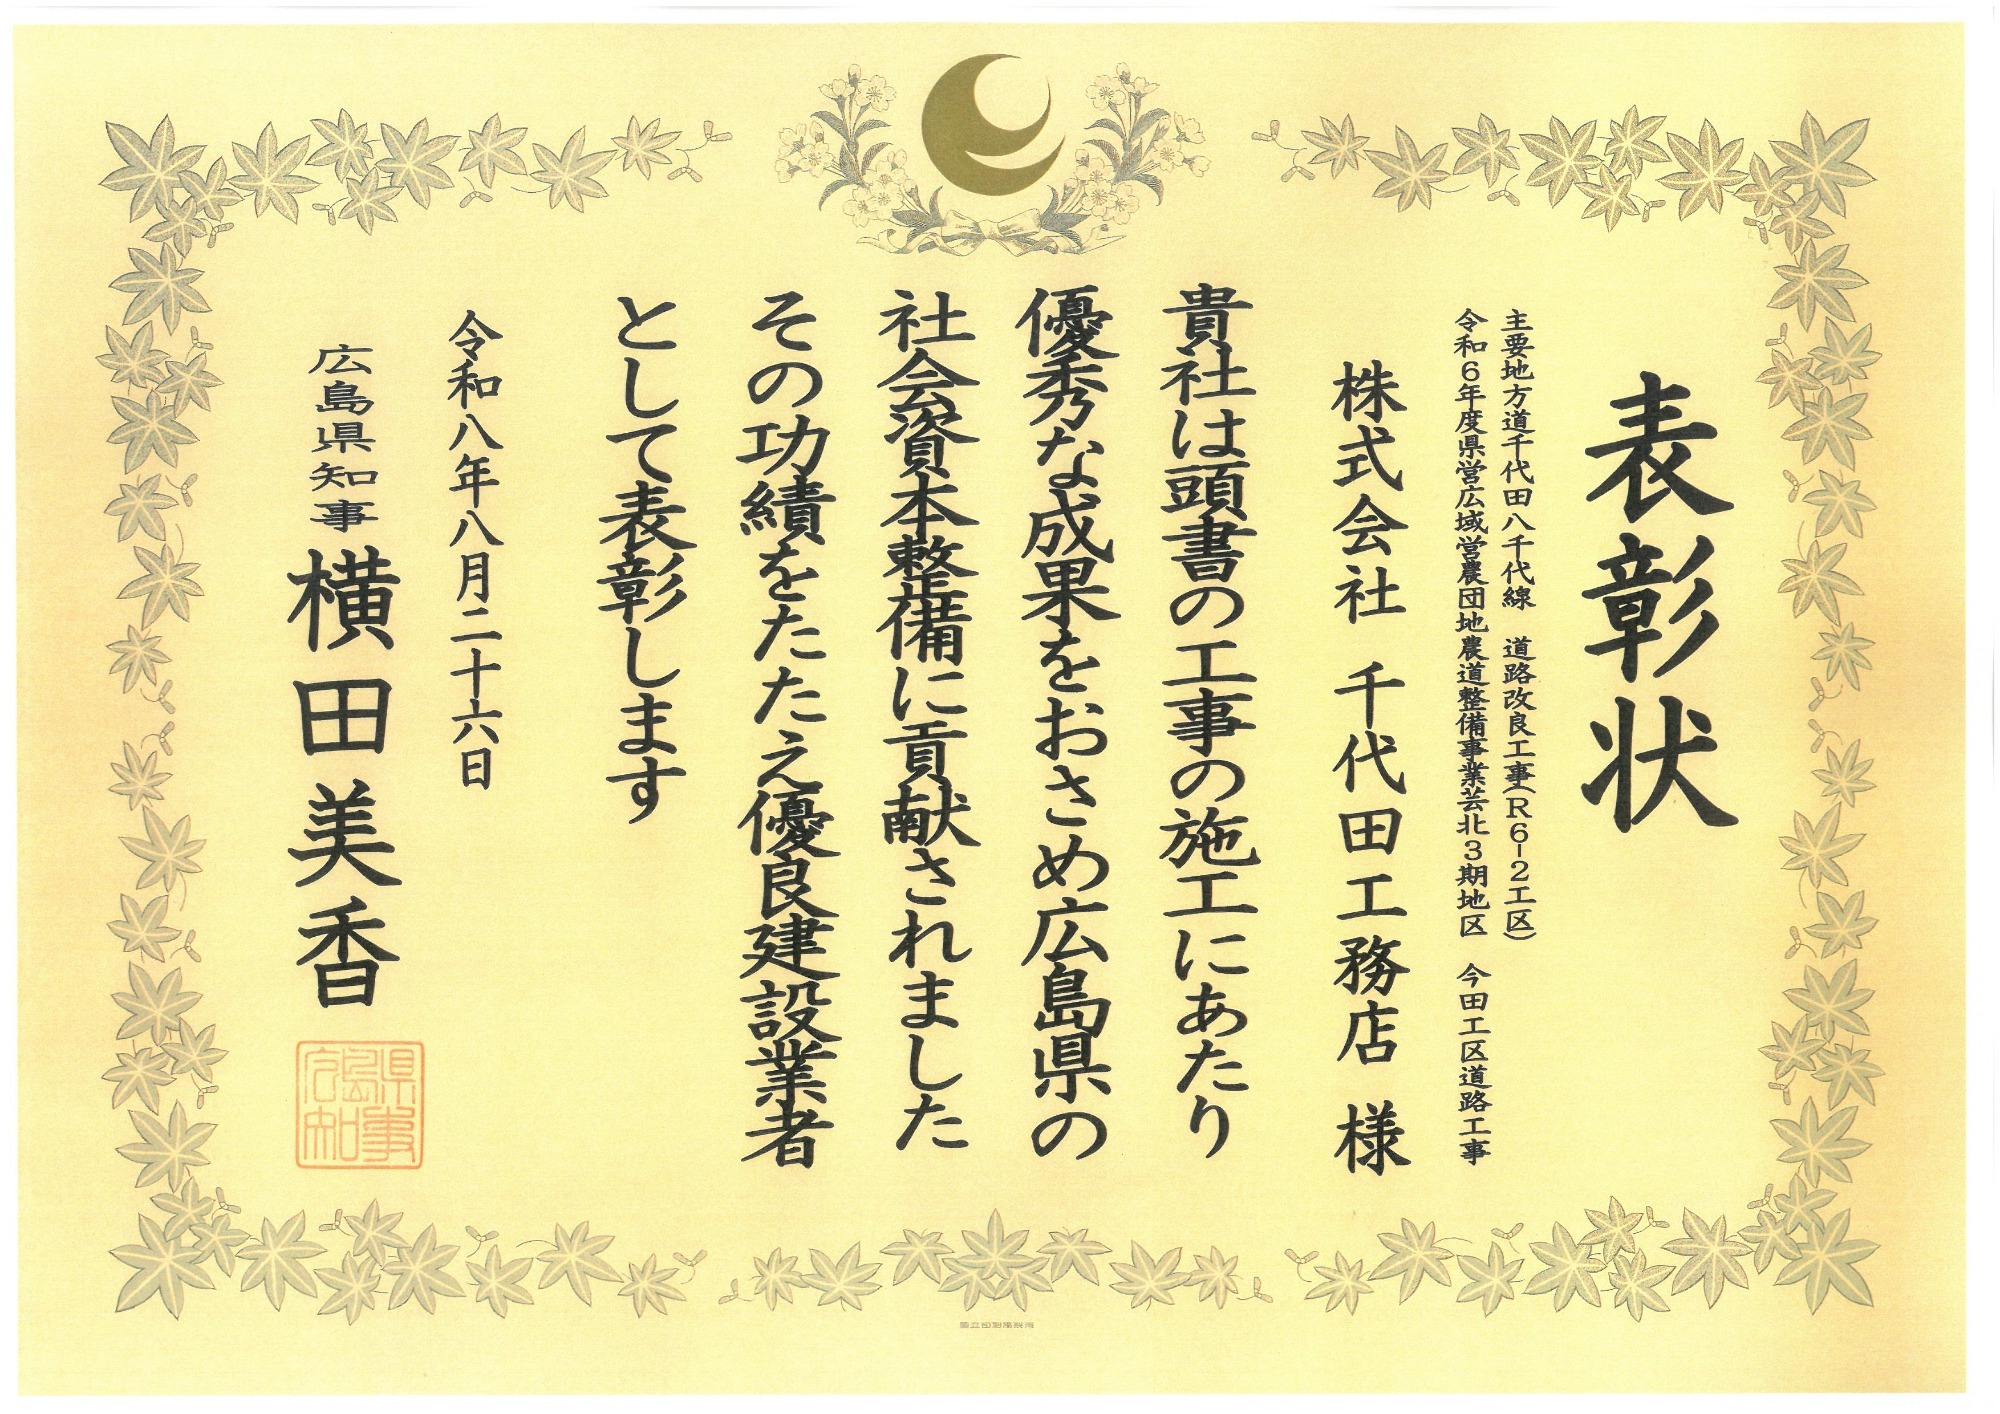 表彰状
主要地方道千代田八千代線　道路改良工事（R６-２工区）
令和６年度県営広域営農団地農道整備事業芸北３期地区　今田工区道路工事
株式会社 千代田工務店 様
貴社は頭書の工事の施工にあたり
優秀な成果をおさめ広島県の
社会資本整備に貢献されました
その功績をたたえ優良建設業者
として表彰します
令和八年八月二十六日
広島県知事 横田美香
広島県知事